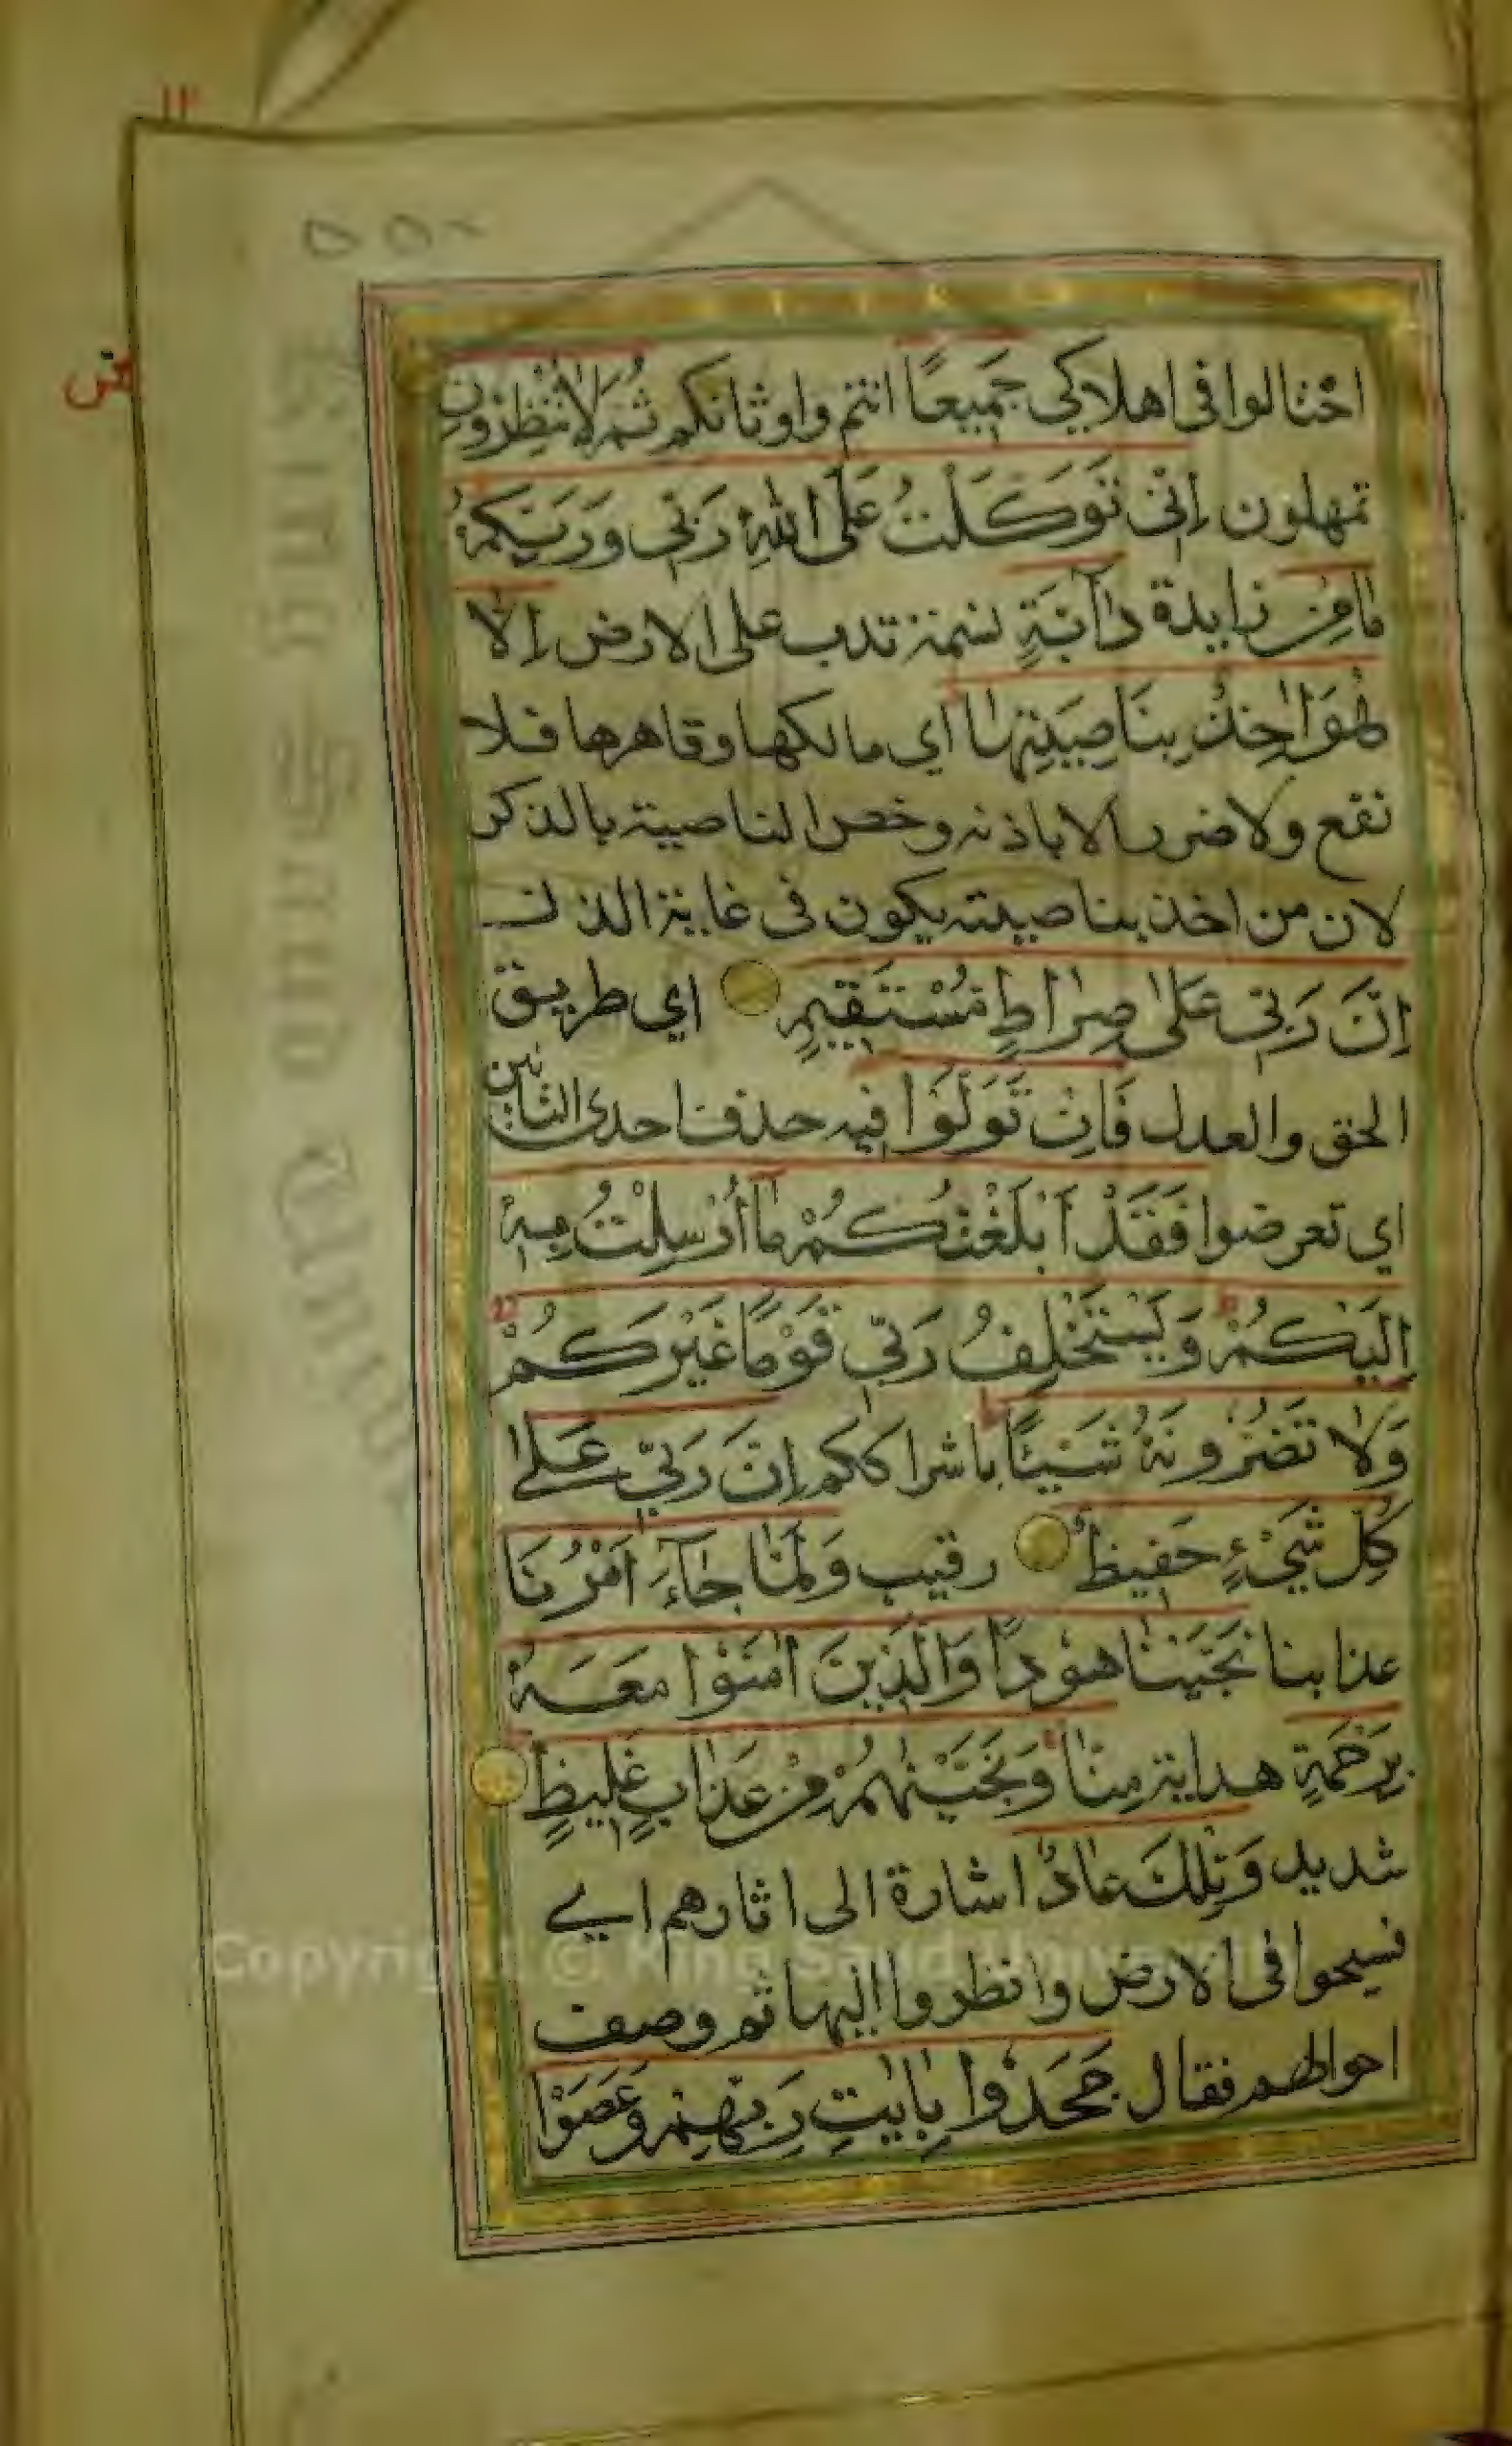 احتالوا في اهلاكي جَمِيعًا انتم واوثانكم ثُمَّ لَا تُنْظِرُونِ
تمهلون اِنِّي تَوَكَّلْتُ عَلَى اللهِ رَبِّي وَرَبِّكُمْ
مَا مِنْ زايدة دَآبَّةٍ نسمة تدب على الارض اِلَّا
هُوَ اٰخِذٌ بِنَاصِيَتِهَا اي مالكها وقاهرها فلا
نفع ولا ضرر الا باذنه وخص الناصية بالذكر
لان من اخذ بناصيته يكون في غاية الذل
اِنَّ رَبِّي عَلٰى صِرَاطٍ مُسْتَقِيمٍ اي طريق
الحق والعدل فَاِنْ تَوَلَّوْا فيه حذف احدى التائين
اي تعرضوا فَقَدْ اَبْلَغْتُكُمْ مَا اُرْسِلْتُ بِهٖ
اِلَيْكُمْ وَيَسْتَخْلِفُ رَبِّي قَوْمًا غَيْرَكُمْ
وَلَا تَضُرُّونَهُ شَيْئًا باشراككم اِنَّ رَبِّي عَلٰى
كُلِّ شَيْءٍ حَفِيظٌ رقيب وَلَمَّا جَآءَ اَمْرُنَا
عذابنا نَجَّيْنَا هُودًا وَالَّذِينَ اٰمَنُوا مَعَهُ
بِرَحْمَةٍ هداية مِنَّا وَنَجَّيْنٰهُمْ مِنْ عَذَابٍ غَلِيظٍ
شديد وَتِلْكَ عَادٌ اشارة الى اثارهم اي
فسيحوا في الارض وانظروا اليها ثم وصف
احوالهم فقال جَحَدُوا بِاٰيٰتِ رَبِّهِمْ وَعَصَوْا
Copyright © King Saud University